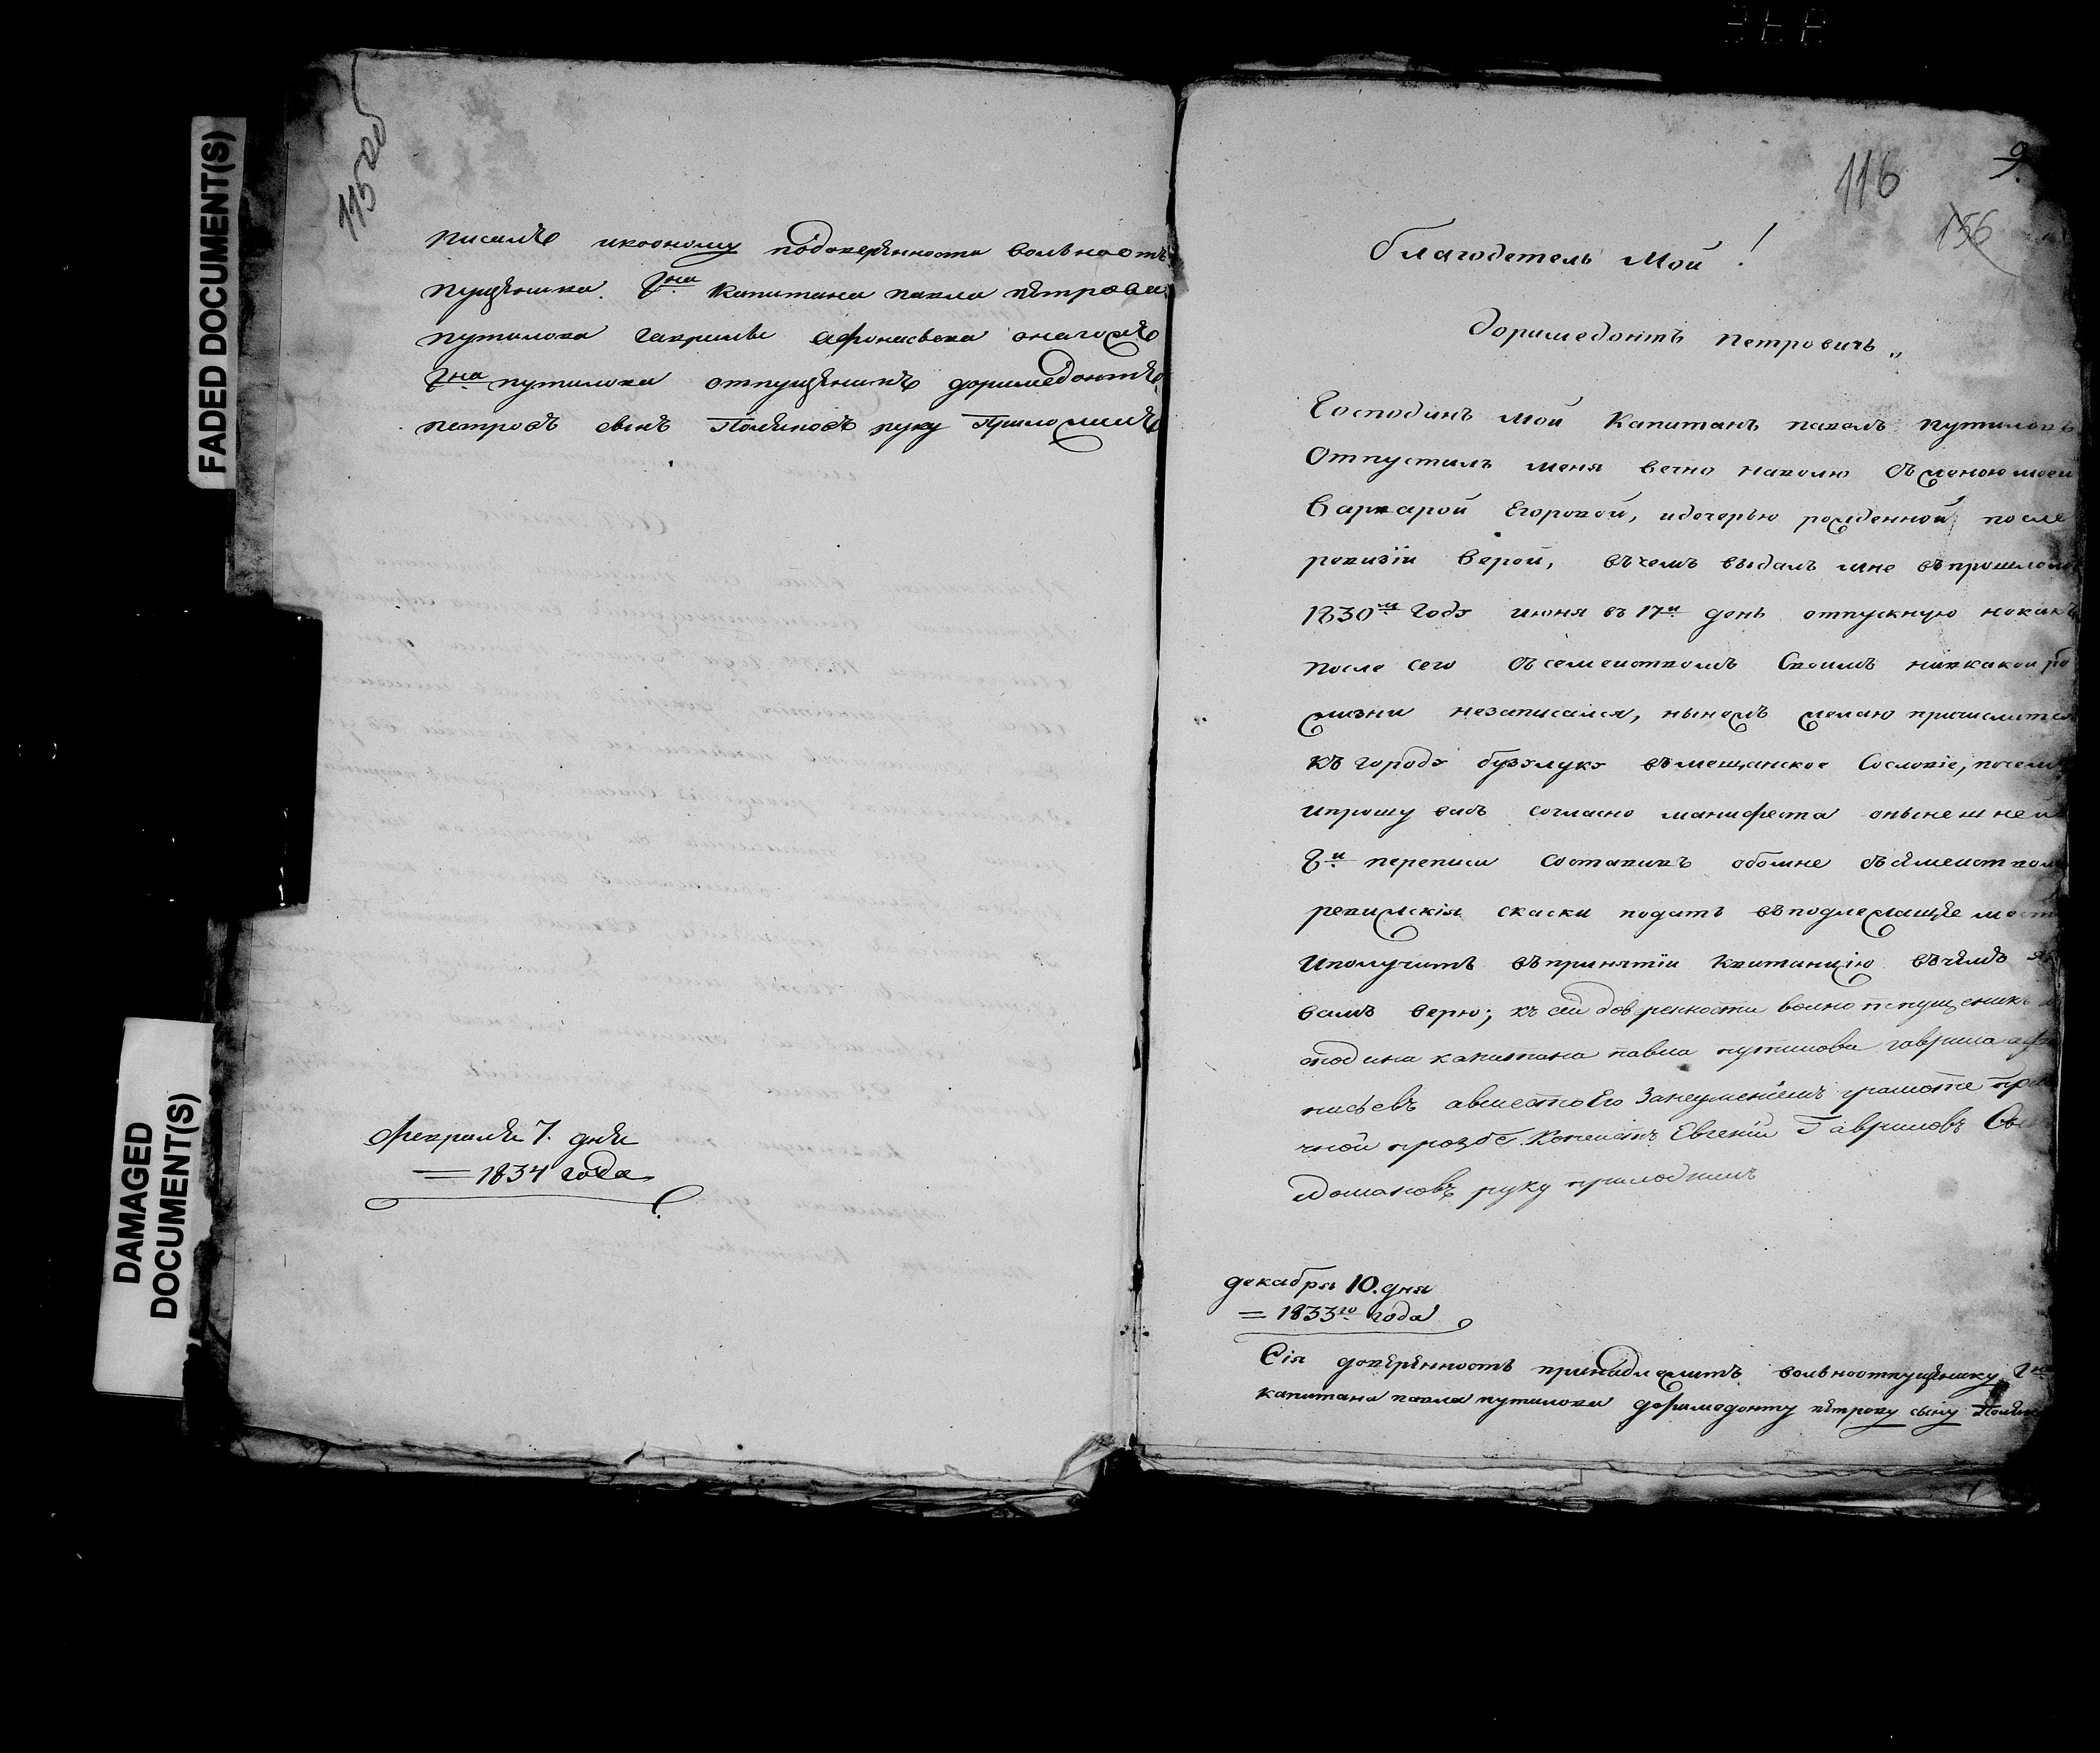 FADED DOCUMENT(S)
DAMAGED
DOCUMENT(S)
115 об
писалъ икоономy подовѣренности вольноотъ
пущѣнника. Гна Капитана павла пѣтрова
путилова гаврилы афонасьева онагожъ
Гна путилова отпущѣникъ доримедонтъ
петровъ сынъ Полѣновъ руку Приложилъ
Февраля 7. дня
= 1834 года
116
9.
156
благодетель Мой!
доримедонтъ петровичь„
Господинъ мой Капитанъ павелъ путиловъ
Отпустилъ меня вечно наволю съженою моей
Варварой Егоровой, идочерью рожденной после
ревизіи верой, въчемъ выдалъ мне въпрошломъ
1830м годэ июня въ 17й день отпускную нокакъ
после сего съсемействомъ Своимъ никкакой ро
жизни незаписался, нынежъ желаю причислится
къ городэ бузэлукэ въмещанское Сословіе, почему
ипрошу васъ согласно манифеста онынешней
8й переписи Составивъ обомне съсѣмейством
ревижскія скаски подать въподлежащѣе место
Иполучить въпринятіи Квитанцію въчѣмъ я
вамъ верю; къ сей доверенности волноотпущеникъ
сподина капитана павла путилова гаврила афо
насьевъ авместо Его Занеумениемъ грамоте
чной прозбе. Копеистъ Евгений Гавриловъ Сы
Домановъ руку приложилъ
декабря 10. дня
= 1833го года
Сія довѣрѣнность принадлежитъ вольноотпущѣнику Гна
капитана павла путилова доримедонту пѣтрову сыну Полѣн